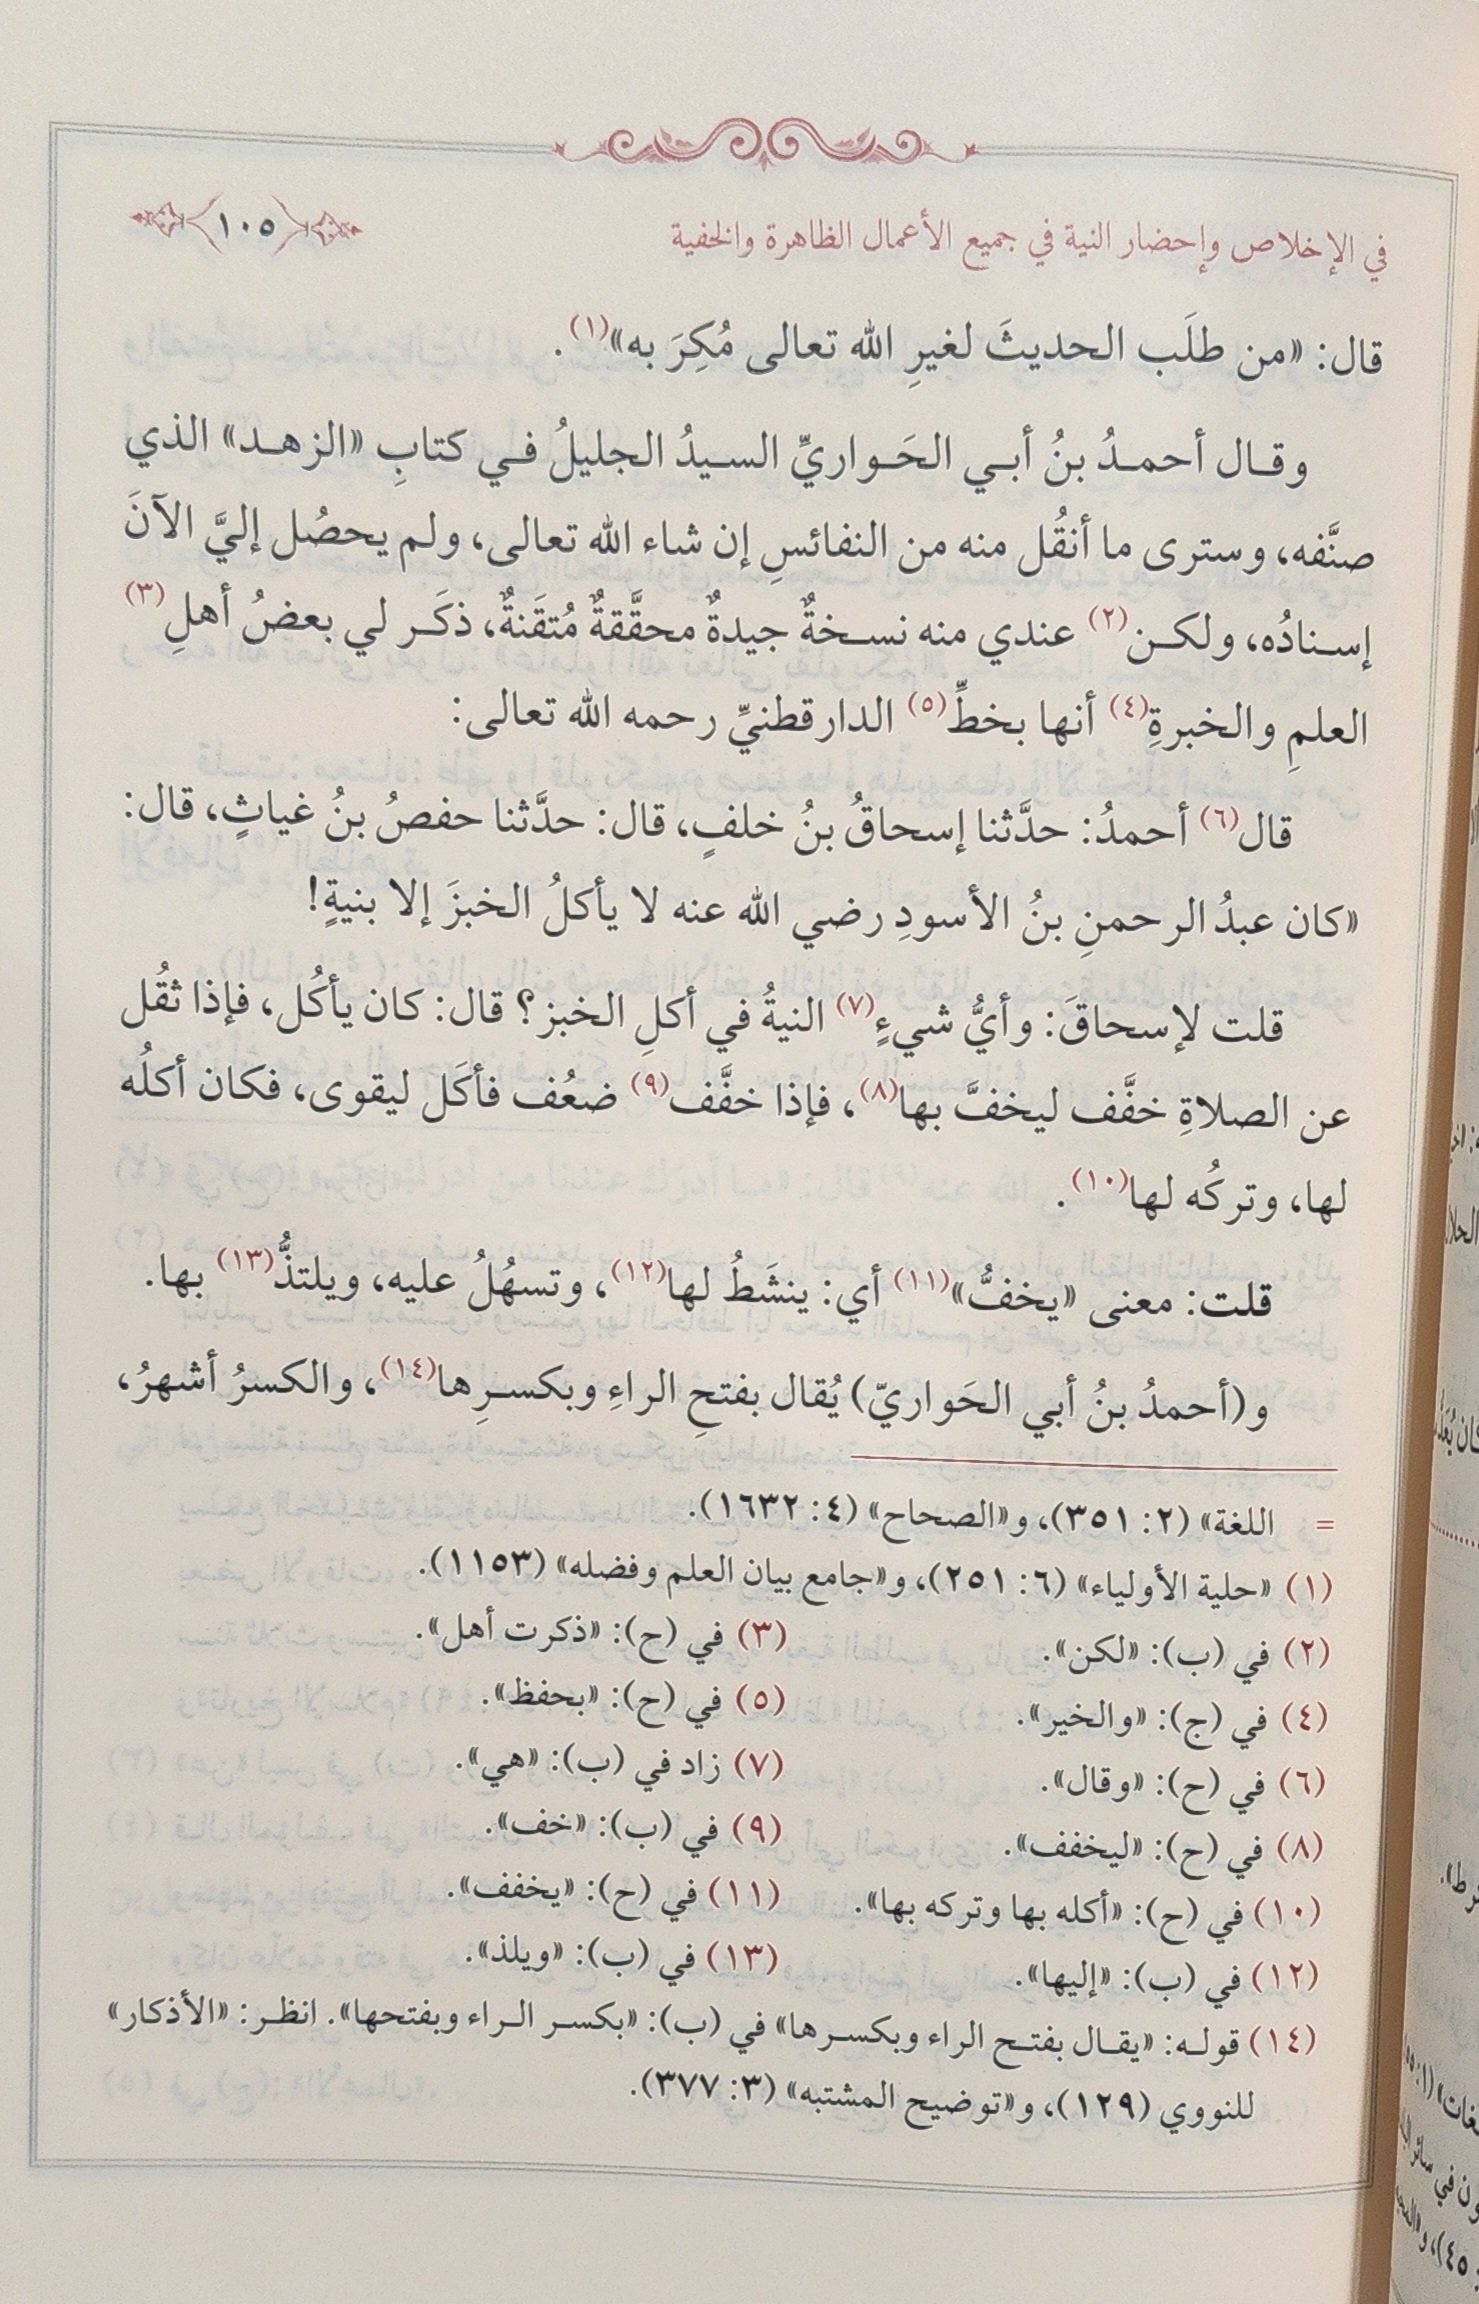 في الإخلاص وإحضار النية في جميع الأعمال الظاهرة والخفية
١٠٥
قال: «من طلَب الحديثَ لغيرِ الله تعالى مُكِرَ به»(١).
وقال أحمدُ بنُ أبي الحَواريِّ السيدُ الجليلُ في كتابِ «الزهد» الذي
صنَّفه، وسترى ما أنقُل منه من النفائسِ إن شاء الله تعالى، ولم يحصُل إليَّ الآنَ
إسنادُه، ولكن(٢) عندي منه نسخةٌ جيدةٌ محقَّقةٌ مُتقَنةٌ، ذكَر لي بعضُ أهلِ(٣)
العلمِ والخبرةِ(٤) أنها بخطِّ(٥) الدارقطنيِّ رحمه الله تعالى:
قال(٦) أحمدُ: حدَّثنا إسحاقُ بنُ خلفٍ، قال: حدَّثنا حفصُ بنُ غياثٍ، قال:
«كان عبدُ الرحمنِ بنُ الأسودِ رضي الله عنه لا يأكلُ الخبزَ إلا بنيةٍ!
قلت لإسحاقَ: وأيُّ شيءٍ(٧) النيةُ في أكلِ الخبز؟ قال: كان يأكُل، فإذا ثقُل
عن الصلاةِ خفَّف ليخفَّ بها(٨)، فإذا خفَّف(٩) ضعُف فأكَل ليقوى، فكان أكلُه
لها، وتركُه لها(١٠).
قلت: معنى «يخفُّ»(١١) أي: ينشَطُ لها(١٢)، وتسهُلُ عليه، ويلتذُّ(١٣) بها.
و(أحمدُ بنُ أبي الحَواريّ) يُقال بفتحِ الراءِ وبكسرِها(١٤)، والكسرُ أشهرُ،
= اللغة» (٢: ٣٥١)، و«الصحاح» (٤: ١٦٣٢).
(١) «حلية الأولياء» (٦: ٢٥١)، و«جامع بيان العلم وفضله» (١١٥٣).
(٢) في (ب): «لكن». (٣) في (ح): «ذكرت أهل».
(٤) في (ج): «والخير». (٥) في (ح): «بحفظ».
(٦) في (ح): «وقال». (٧) زاد في (ب): «هي».
(٨) في (ح): «ليخفف». (٩) في (ب): «خف».
(١٠) في (ح): «أكله بها وتركه بها». (١١) في (ح): «يخفف».
(١٢) في (ب): «إليها». (١٣) في (ب): «ويلذ».
(١٤) قوله: «يقال بفتح الراء وبكسرها» في (ب): «بكسر الراء وبفتحها». انظر: «الأذكار»
للنووي (١٢٩)، و«توضيح المشتبه» (٣: ٣٧٧).